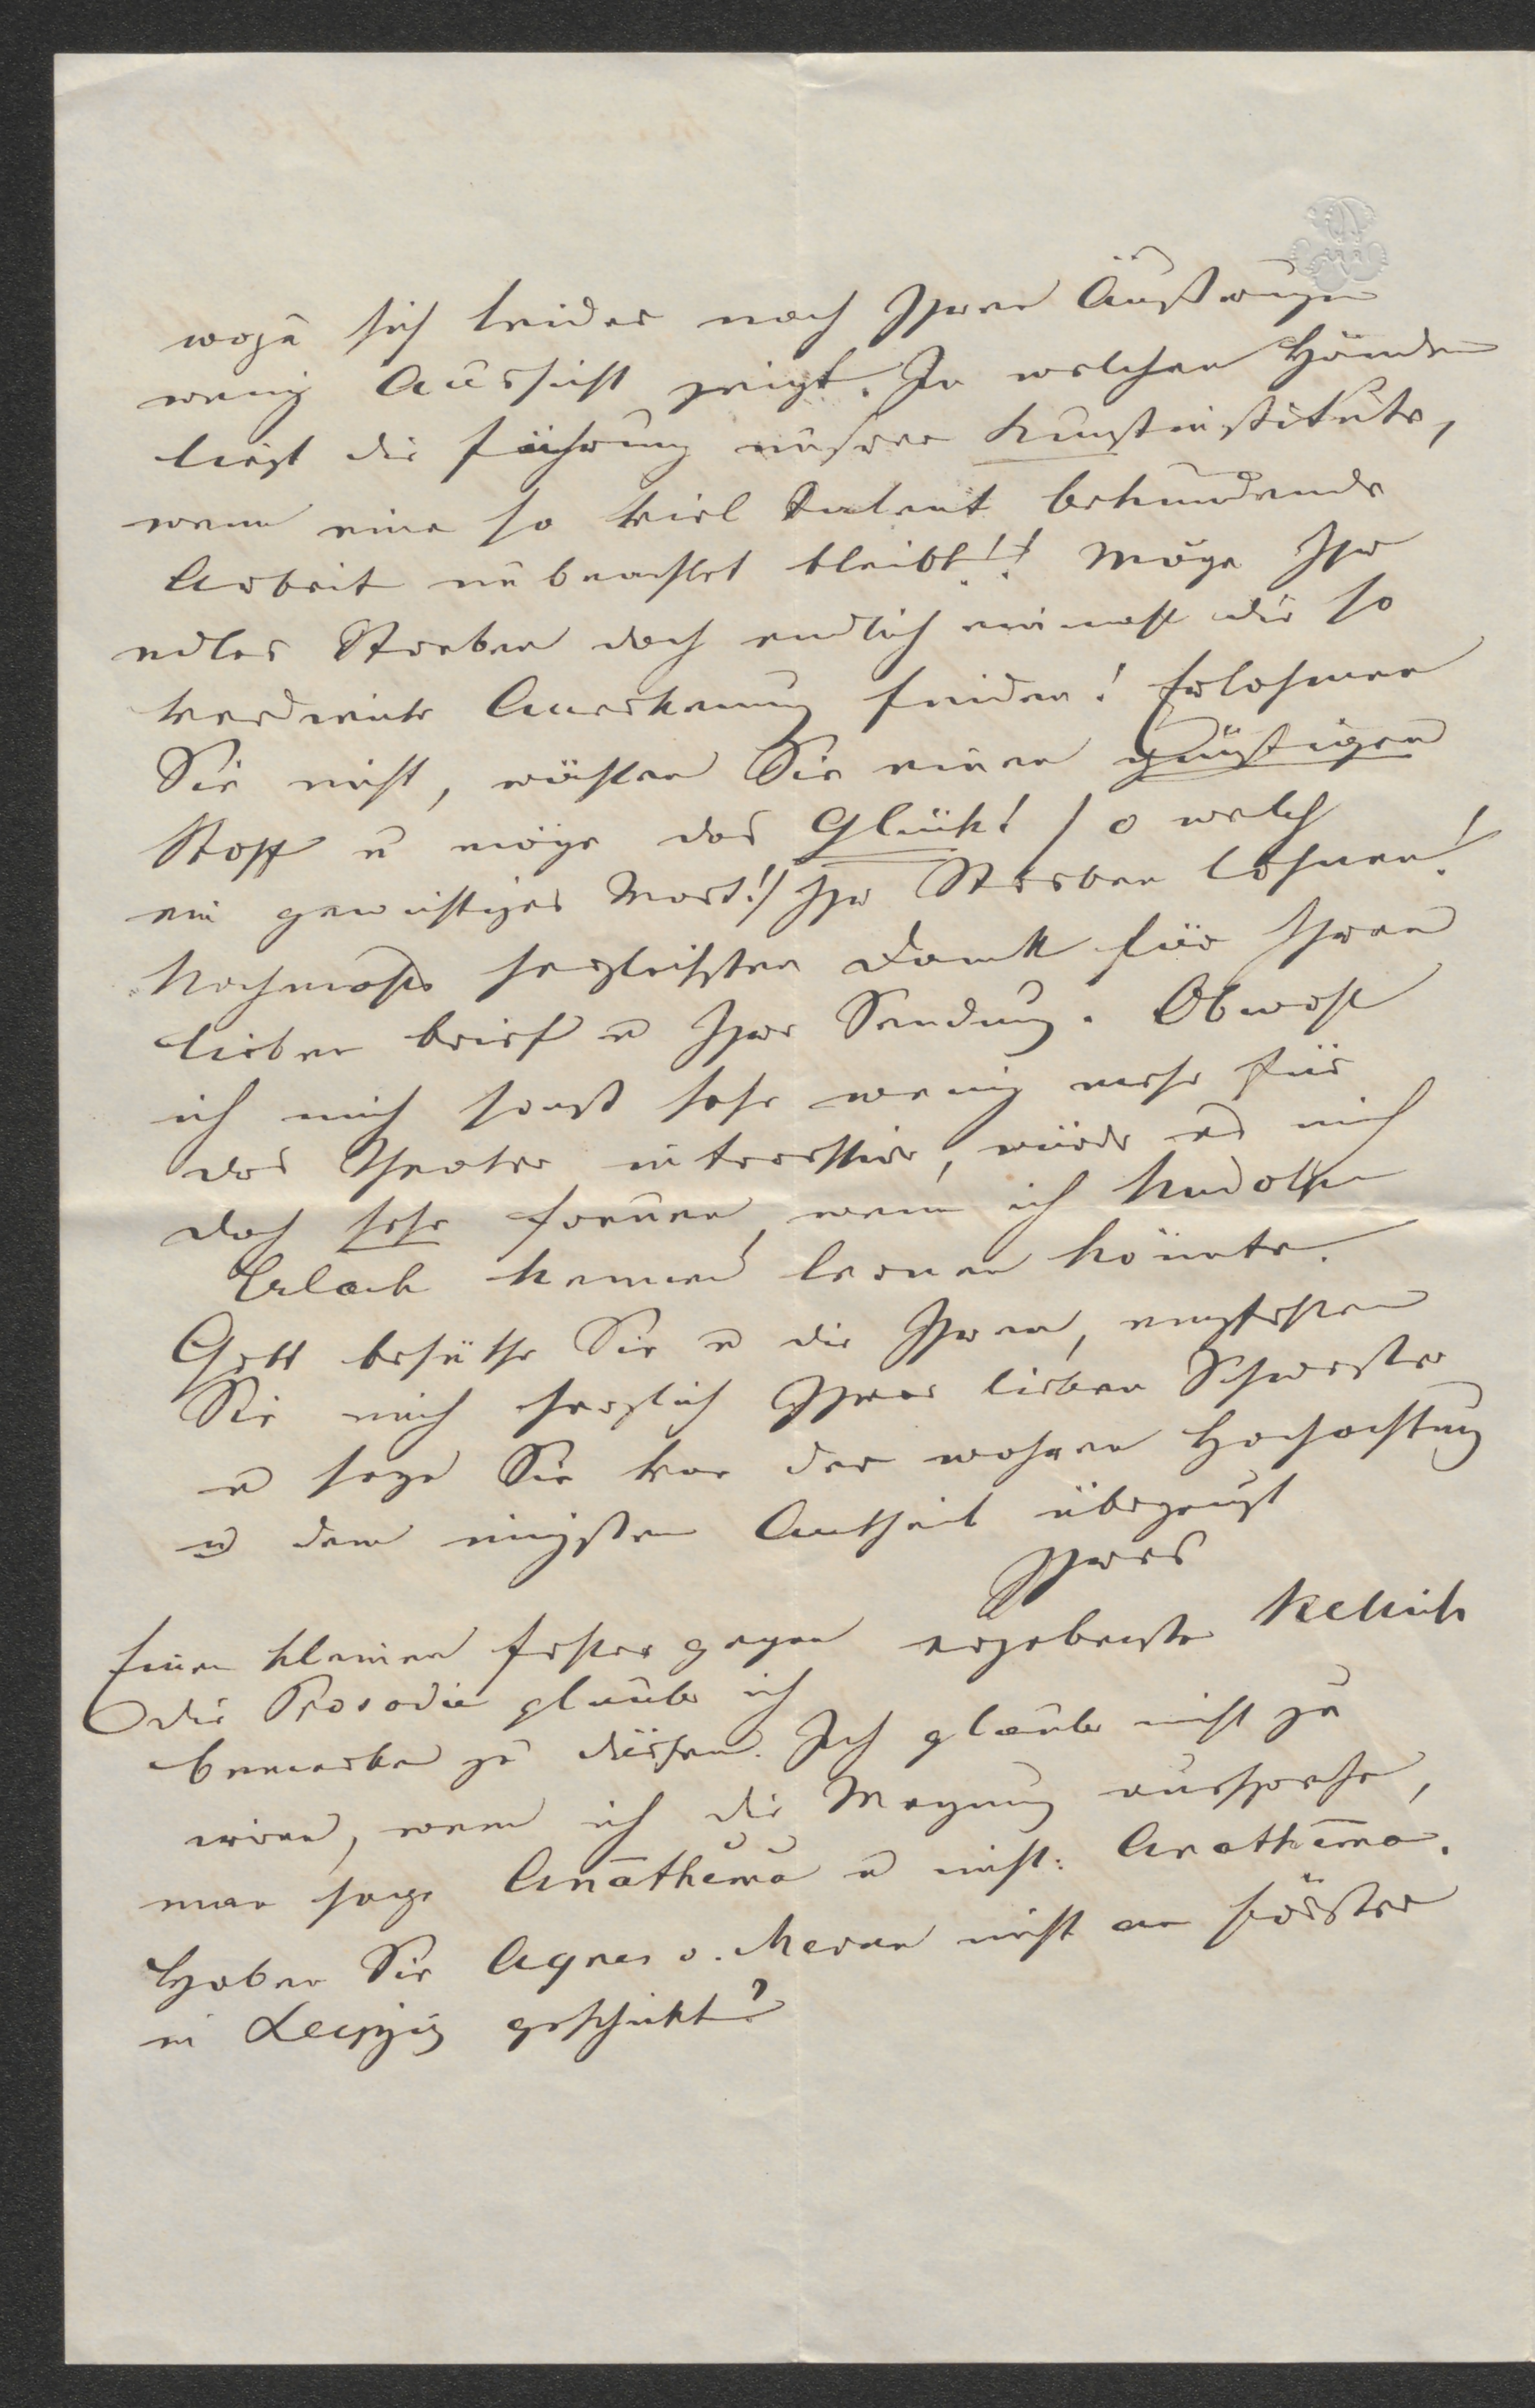 wozu sich leider nach Ihren Äußerungen
wenig Aussicht zeigt. In welchen Händen
liegt die Führung unsrer Kunstinstitute,
wenn eine so viel Talent bekundende
Arbeit unbeachtet bleibt!! Möge Ihr
edles Streben doch endlich einmahl die so
verdiente Anerkenung finden! Erlahmen
Sie nicht, wählen Sie einen günstigen
Stoff u möge das Glück! / o welch
ein gewichtiges Wort!/ Ihr Streben lohnen!
Nochmahls herzlichsten Dank für Ihren
lieben Brief u Ihre Sendung. Obwohl
ich mich sonst sehr wenig mehr für
das Theater interessire, würde es mich
doch sehr freuen, wenn ich Rudolf
Erlach kennen lernen könnte.
Gott behüthe Sie u die Ihren, empfehlen
Sie mich herzlich Ihrer lieben Schwester
u seyn Sie von der wahren Hochachtung
u dem innigsten Antheil überzeugt
Ihres
ergebensten Rettich
Einen kleinen Fehler gegen
die Prosodie glaube ich
bemerken zu dürfen. Ich glaube nicht zu
irren, wenn ich die Meynung ausspreche,
man sage Anāthĕmă u nicht: Anathēma.
Haben Sie Agnes v. Meran nicht an Förster
in Leipzig geschickt?